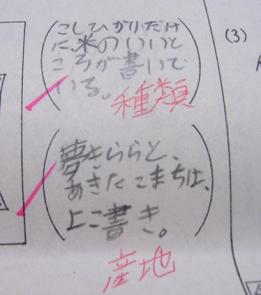 こしひかりだけ
に、米のいいと
ころが書いて
いる。
種類
夢きららと、
あきたこまちは、
上に書き。
産地
(3)